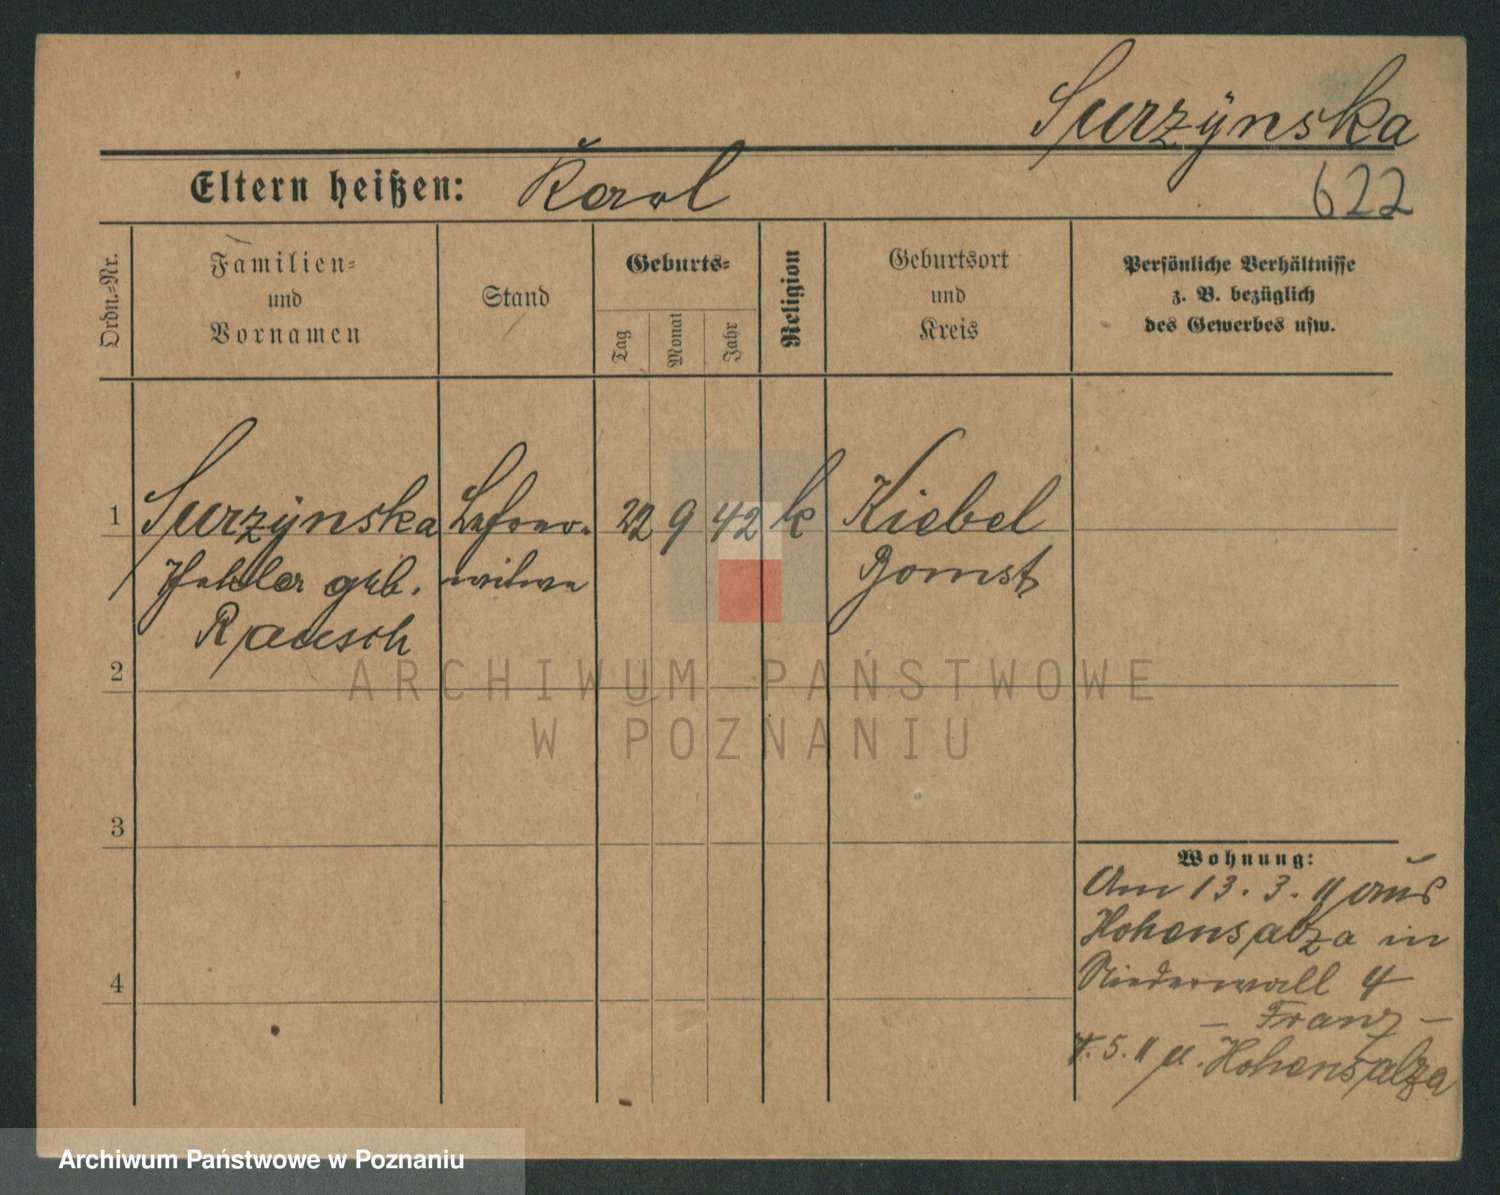 Surzÿnska
Eltern heißen: Karol
622
Ordn.-Nr.
Familien-
und
Vornamen
Stand
Geburts-
Tag
Monat
Jahr
Religion
Geburtsort
und
Kreis
Persönliche Verhältnisse
z. B. bezüglich
des Gewerbes usw.
1
Surzÿnska
geb.
Rausch
Lehrer-
witwe
22 9 42 k
Kiebel
Bomst
2
3
4
Wohnung:
Am 13. 3. 11 aus
Hohensalza in
Niederwall 4
– Franz –
5. 11 n. Hohensalza
ARCHIWUM PAŃSTWOWE
W POZNANIU
Archiwum Państwowe w Poznaniu